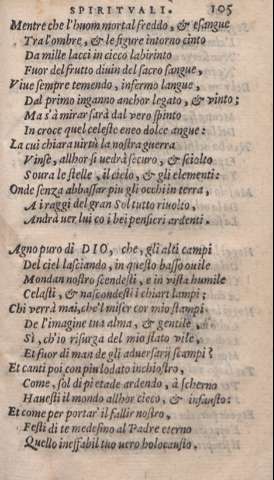 SPIRITVALI. 105
Mentre che l'huom mortal freddo, & esangue
Tra l'ombre, & le figure intorno cinto
Da mille lacci in cieco labirinto
Fuor del frutto diuin del sacro sangue,
Viue sempre temendo, infermo langue,
Dal primo inganno anchor legato, & vinto;
Ma s'à mirar sarà dal vero spinto
In croce quel celeste eneo dolce angue:
La cui chiara virtù la nostra guerra
Vinse, allhor si uedrà securo, & sciolto
Soura le stelle, il cielo, & gli elementi:
Onde senza abbassar piu gli occhi in terra,
A i raggi del gran Sol tutto riuolto,
Andrà uer lui co i bei pensieri ardenti.
Agno puro di DIO, che, gli alti campi
Del ciel lasciando, in questo basso ouile
Mondan nostro scendesti, e in vista humile
Celasti, & nascondesti i chiari lampi;
Chi verrà mai, che'l miser cor mio stampi
De l'imagine tua alma, & gentile
Sì, ch'io risurga del mio stato vile,
Et fuor di man de gli aduersarij scampi?
Et canti poi con piu lodato inchiostro,
Come, sol di pietade ardendo, à scherno
Hauesti il mondo allhor cieco, & infausto:
Et come per portar' il fallir nostro,
Festi di te medesimo al Padre eterno
Quello ineffabil tuo uero holocausto.